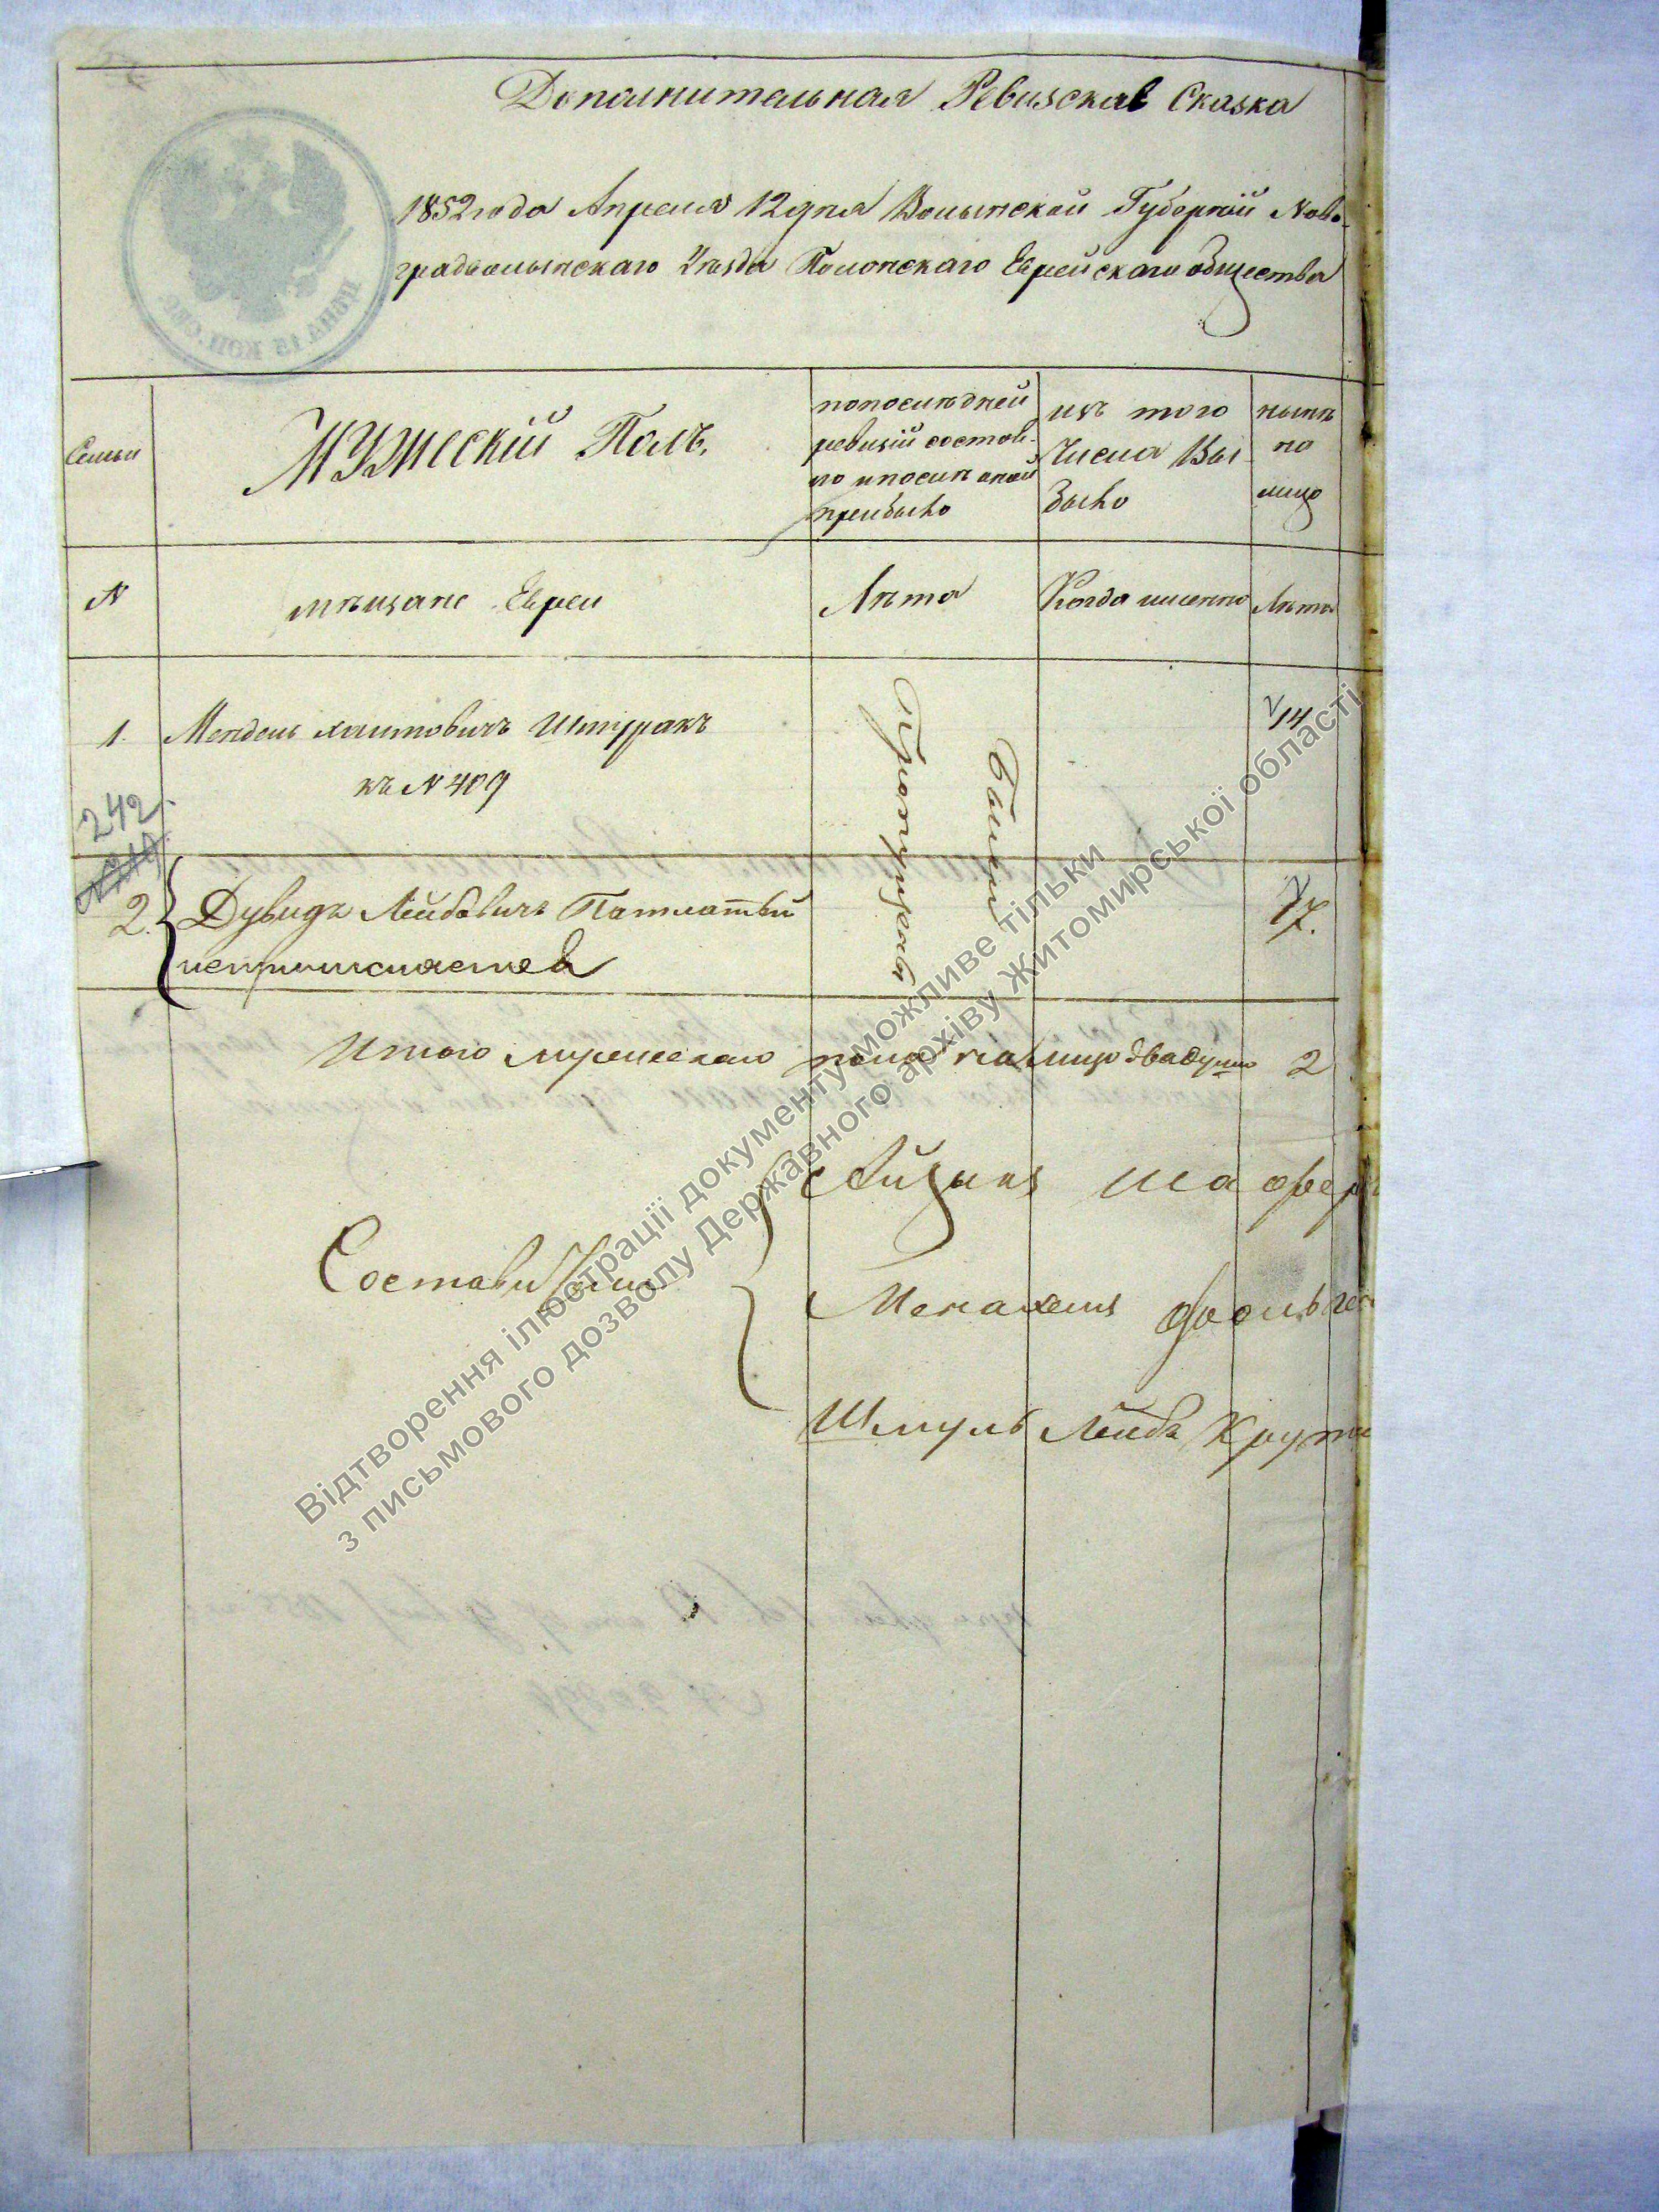 Дополнительная Ревизская Сказка
1852 года Апреля 12 дня Волынской Губерніи Ново-
градволынскаго Уѣзда Полонскаго Еврейскаго общества
ЦѢНА 15 КОП. СЕР.
Семьи
Мужескій Полъ.
по последней ревизій состоя-ло и после оной прибыло
изъ того Числа Вы было
нынѣ на лицо
N
мѣщане Евреи
Лѣта
Когда именно
Лѣта
1.
Мендель Хаимовичъ Штуракъ
14
къ N 409
Пропущены
были
242
2.
Дувидъ Лейбовичъ Патлатый
7.
непричисляется
Итого мужескаго пола на лицо двадуши 2
Составили
Айзикъ Шафер
Менахемъ
Шмуль Лейба Крути
Відтворення ілюстрації документу можливе тільки
з письмового дозволу Державного архіву Житомирської області